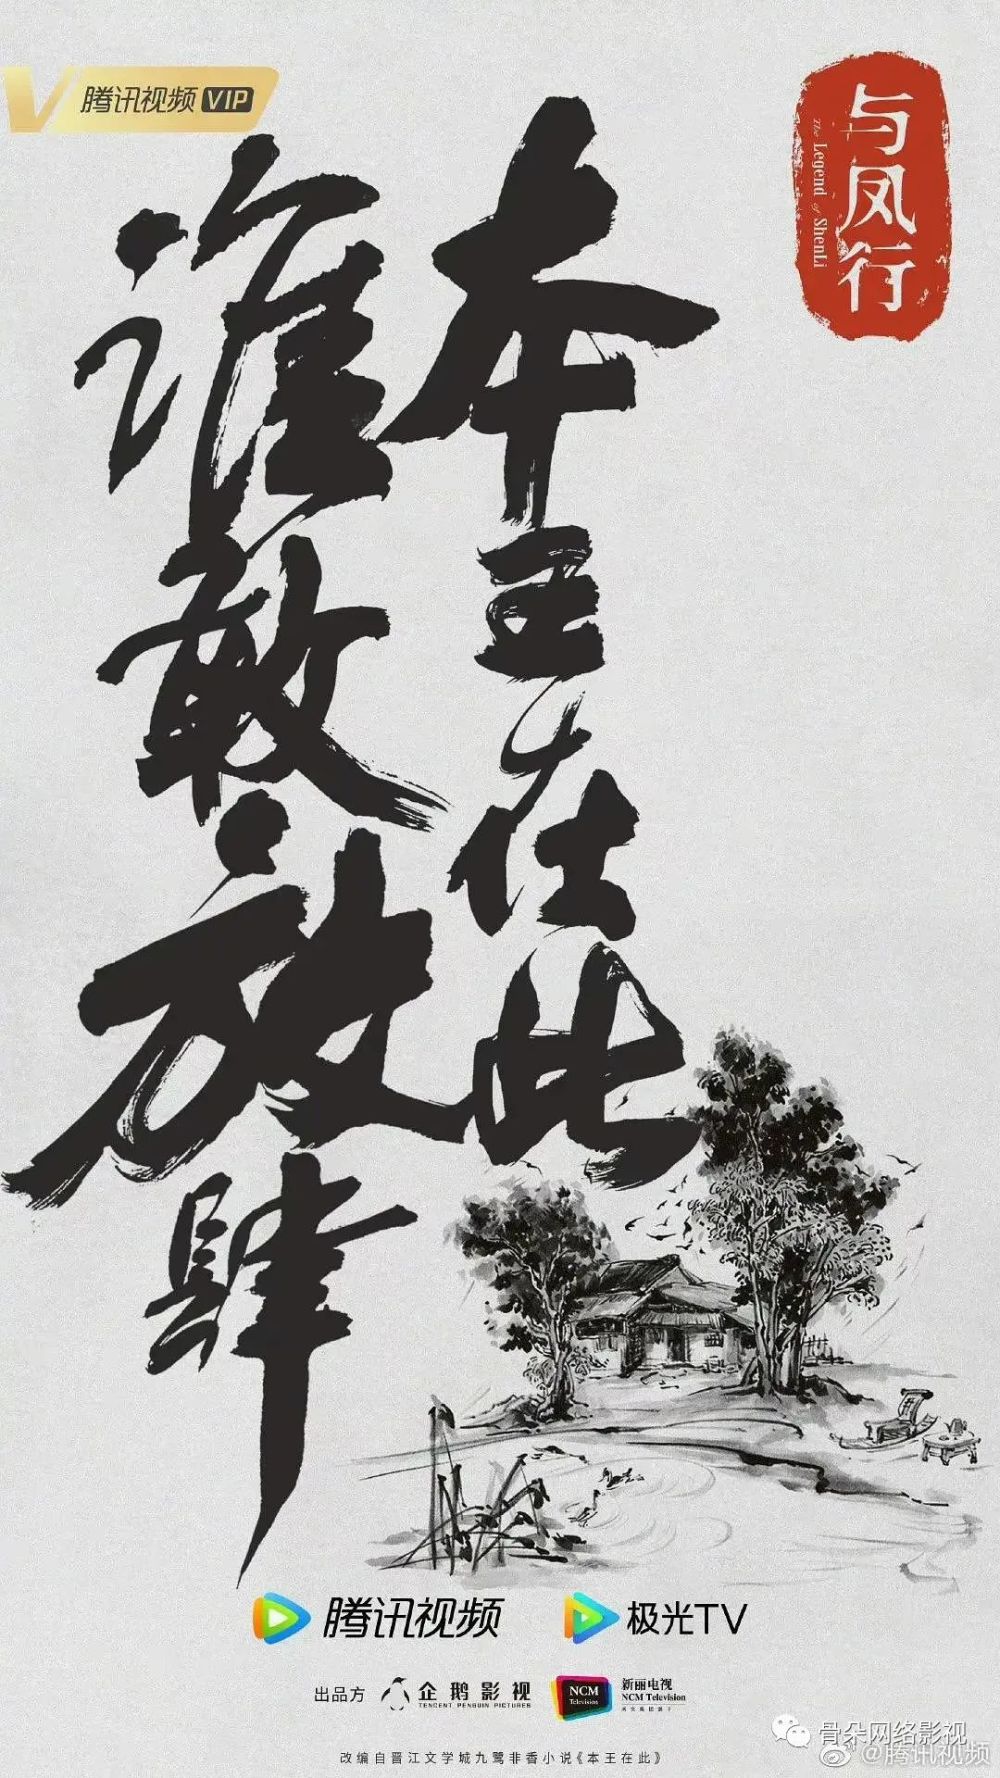 腾讯视频 VIP
与凤行
The Legend of ShenLi
本王在此
谁敢放肆
腾讯视频
极光TV
出品方
企鹅影视
TENCENT PENGUIN PICTURES
NCM
Television
新丽电视
NCM Television
骨朵网络影视
@腾讯视频
改编自晋江文学城九鹭非香小说《本王在此》